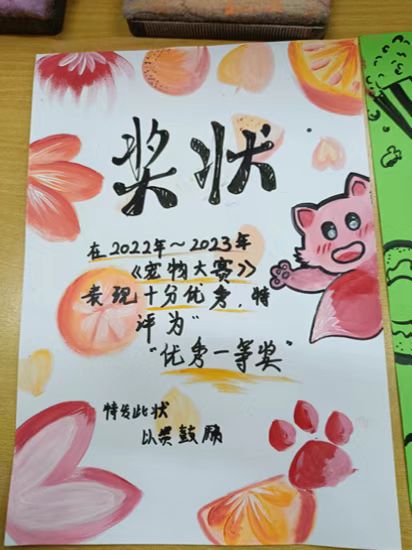 奖状
在2022年～2023年
《宠物大赛》
表现十分优秀，特
评为"
"优秀一等奖"
特发此状
以资鼓励